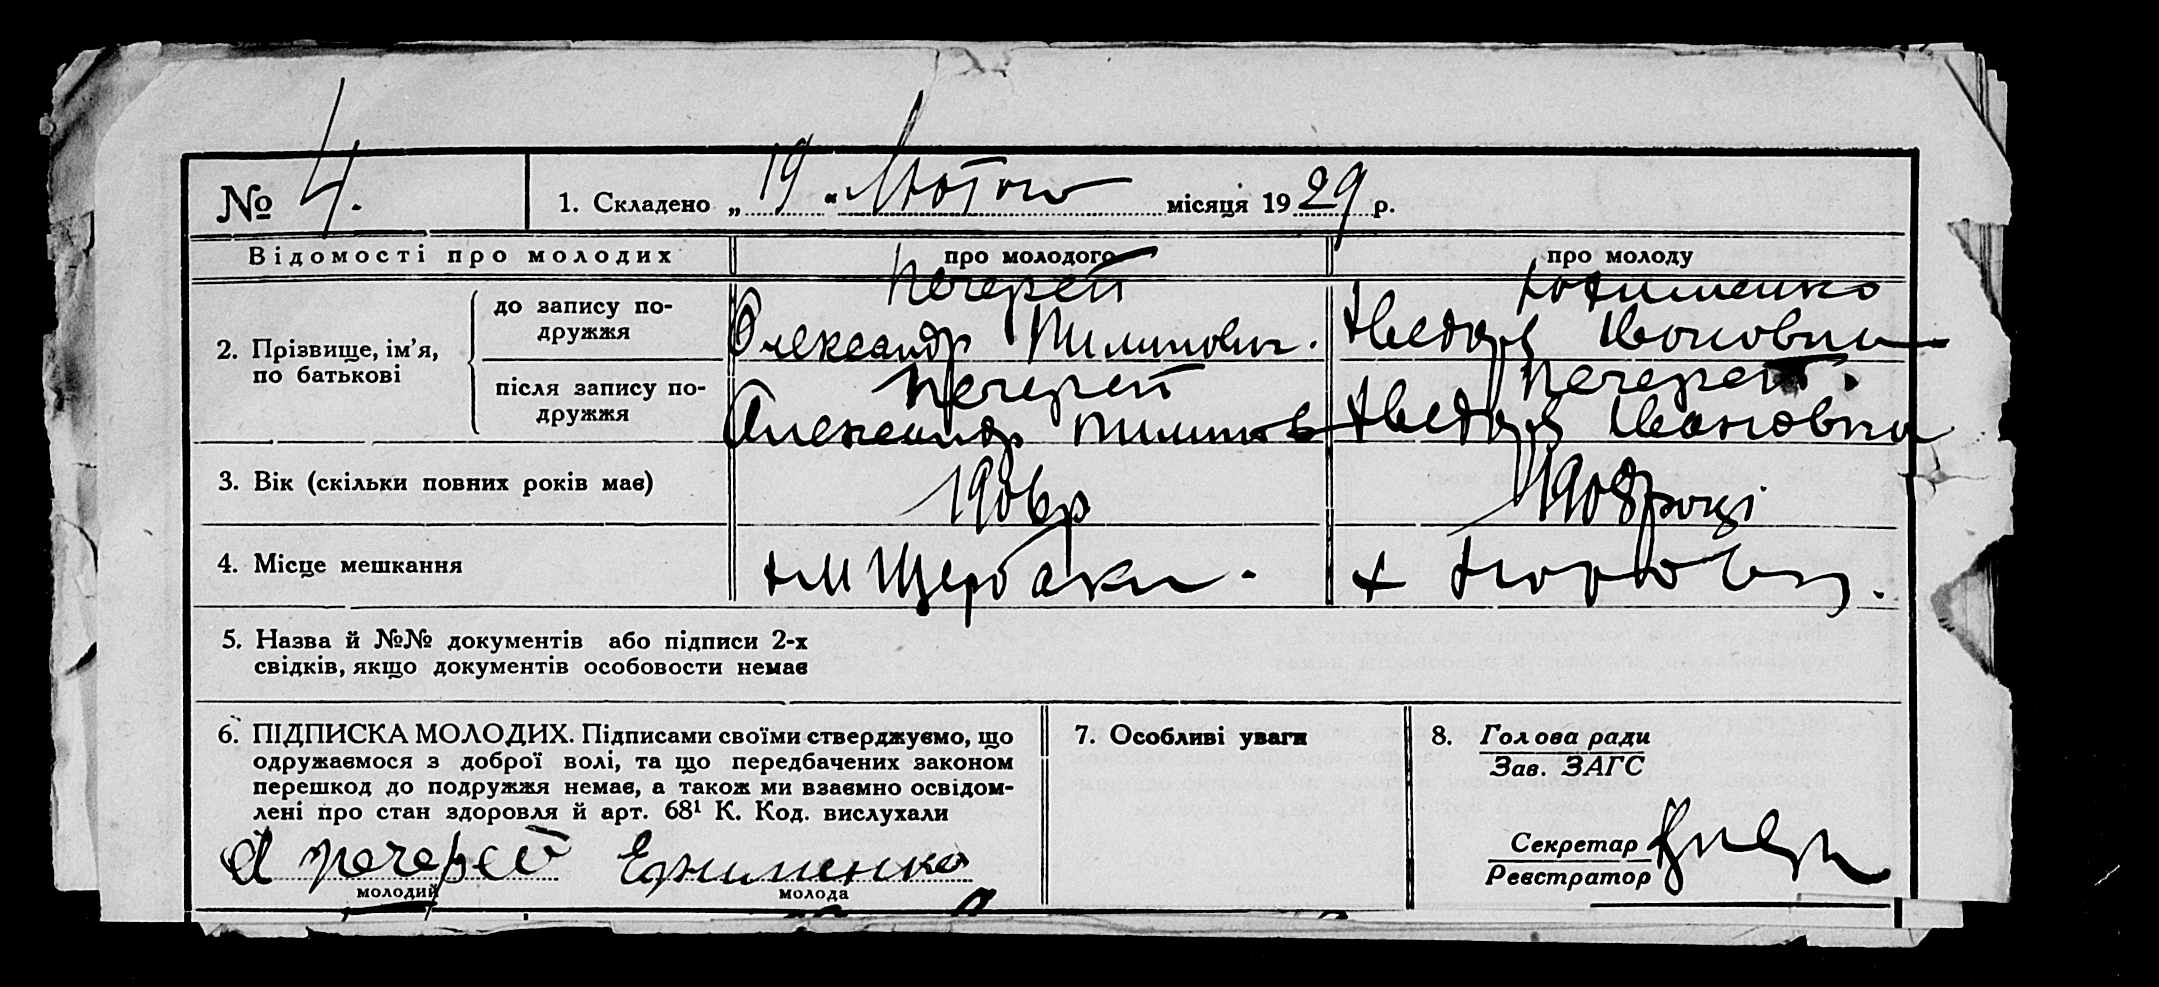 № 4.
1. Складено „19“ Лютого місяця 1929 р.
Відомості про молодих
про молодого
про молоду
2. Прізвище, ім’я, по батькові
до запису подружжя
Печерей
Олександр Пилипович.
Юхименко
Іванов
після запису подружжя
Печерей
Олександр Пилипов
Печерей.
Івановна
3. Вік (скільки повних років має)
1906 р
1908 році
4. Місце мешкання
Щербаки.
5. Назва й №№ документів або підписи 2-х
свідків, якщо документів особовости немає
6. ПІДПИСКА МОЛОДИХ. Підписами своїми стверджуємо, що
одружаємося з доброї волі, та що передбачених законом
перешкод до подружжя немає, а також ми взаємно освідом-
лені про стан здоровля й арт. 68¹ К. Код. вислухали
А Печерей
молодий
Ефименко
молода
7. Особливі уваги
8. Голова ради
Зав. ЗАГС
Секретар
Реєстратор